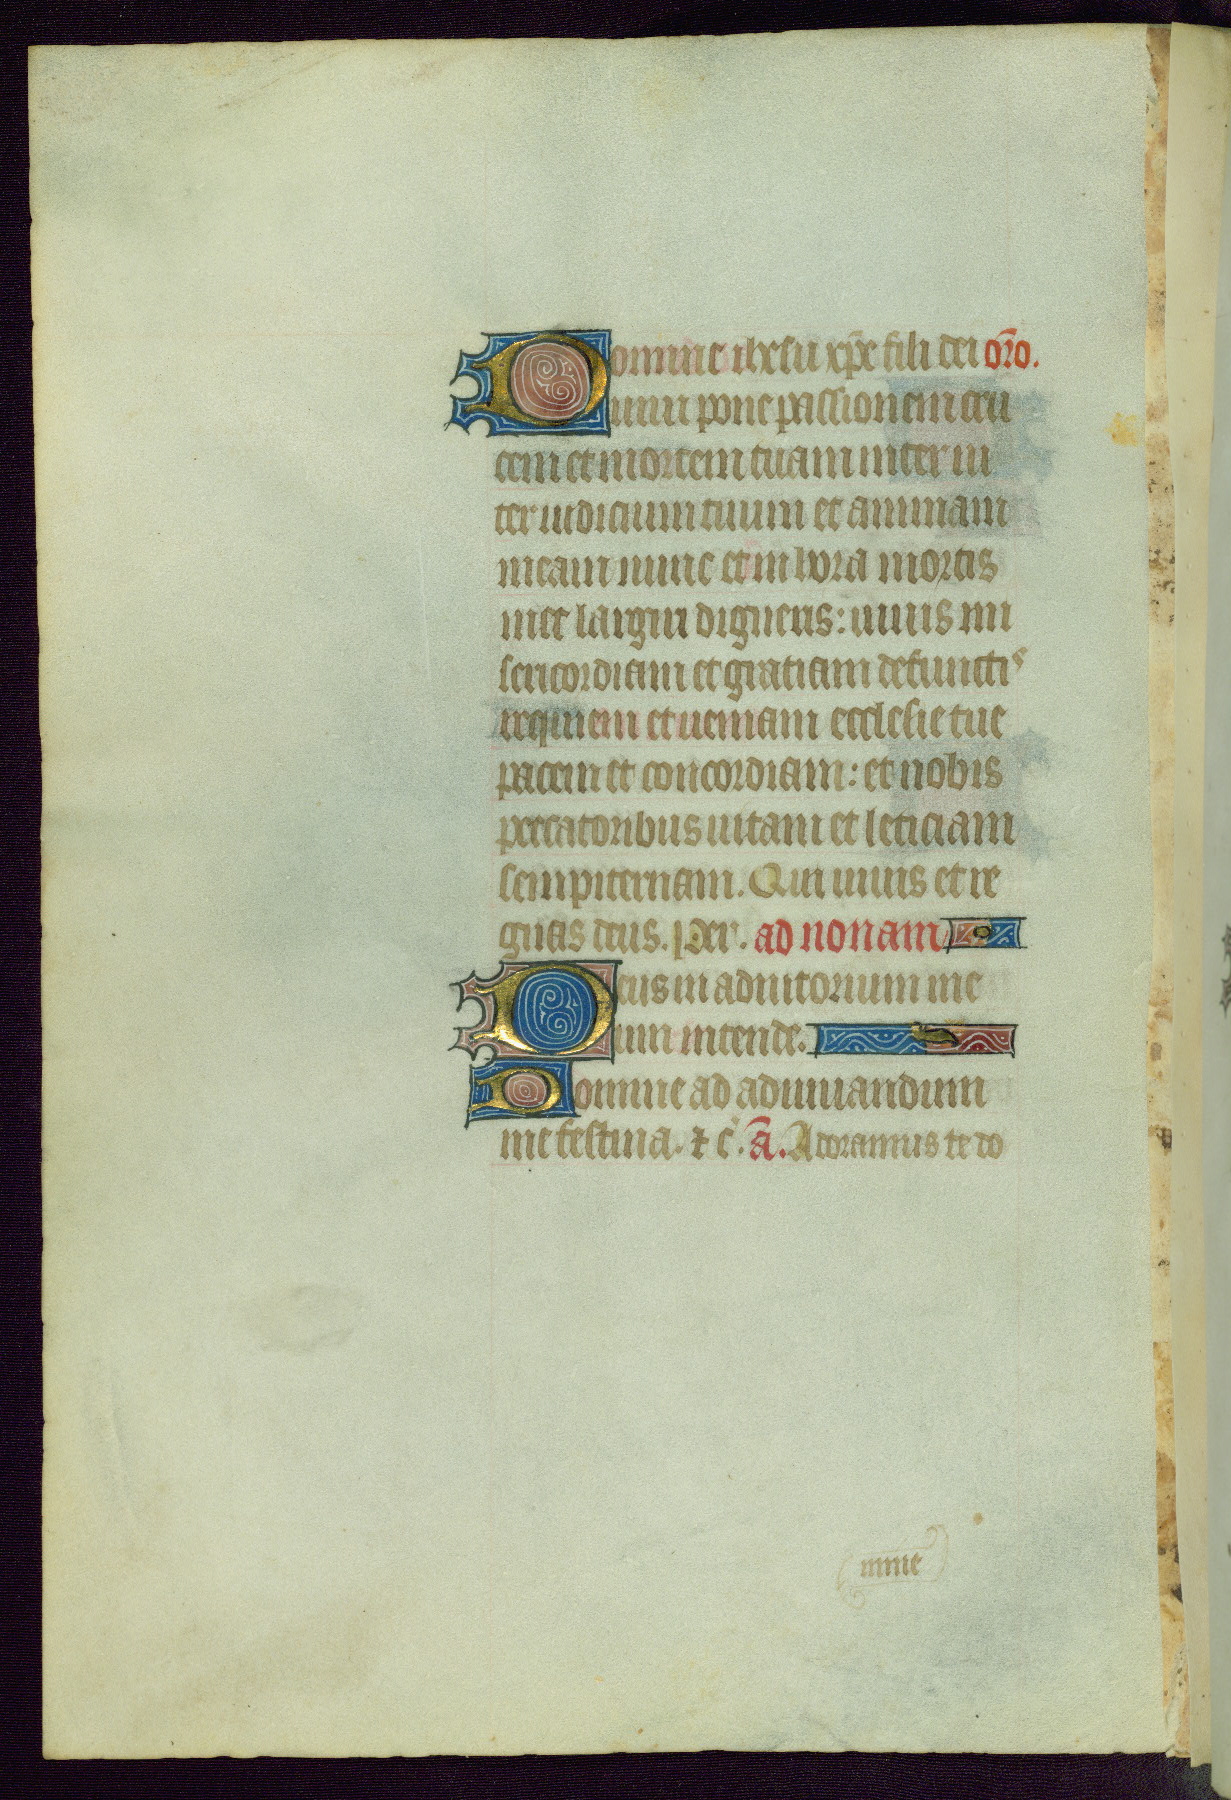 Domine ihesu xp̄e fili dei or̄o.
uiui pone passionem cru
cem et mortem tuam inter in
ter iudicium tuum et animam
meam nunc et in hora mortis
mee largiri digneris: uiuis mi
sericordiam et gratiam defunctis
requiem et ueniam ecclesie tue
pacem et concordiam: et nobis
peccatoribus uitam et leticiam
sempiternam. Qui uiuis et re
gnas deus. Per. ad nonam
Deus in adiutorium me
um intende.
Domine ad adiuuandum
me festina. ⁊ c̄. ā. Adoramus te do
mine